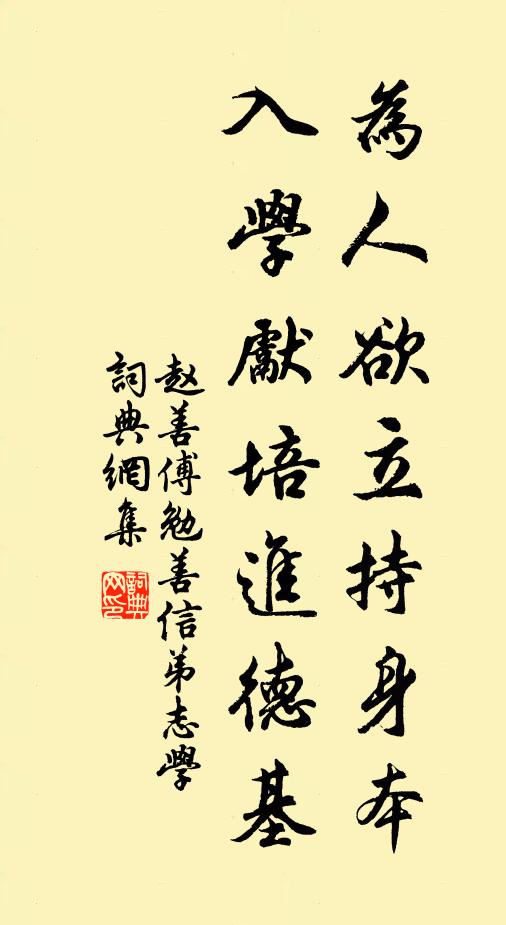 為人欲立持身本
入學獻培進德基
赵善傅勉善信弟志學
詞典網集
詞典网印